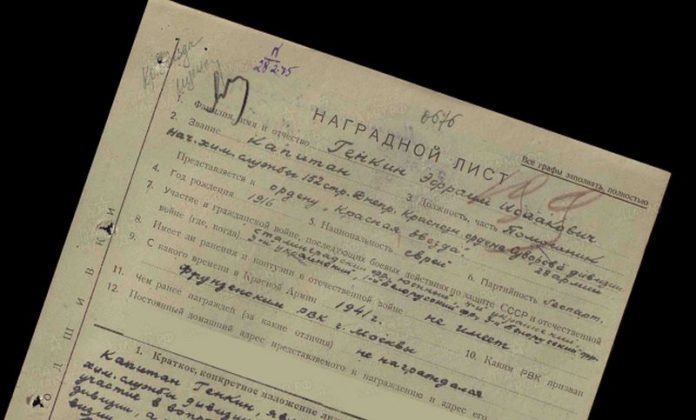 Кр. Звезда
28.2.45
0676
НАГРАДНОЙ ЛИСТ
Все графы заполнять полностью
1. Фамилия, имя и отчество Генкин Эфраим Исаакович
2. Звание Капитан 3. Должность, часть Помощник
нач. хим. службы 152 стр. Днепр. Краснозн. ордена Суворова дивизии
28 армии
Представляется к ордену „Красная звезда"
4. Год рождения 1916 5. Национальность еврей 6. Партийность беспарт.
7. Участие в гражданской войне, последующих боевых действиях по защите СССР и отечественной
войне (где, когда) Сталинградский фр., Южный, 4й украинский,
3й украинский, 1й белорусский фр., 3й белорусский фр.
8. Имеет ли ранения и контузии в отечественной войне не имеет
9. С какого времени в Красной Армии 1941 г. 10. Каким РВК призван
Фрунзенским РВК г. Москвы
11. Чем ранее награжден (за какие отличия) не награждался
12. Постоянный домашний адрес представляемого к награждению и адрес его
1. Краткое, конкретное изложение
Капитан Генкин,
хим. службы дивизии,
участие в
дивизии, а
ПОДШИВКИ